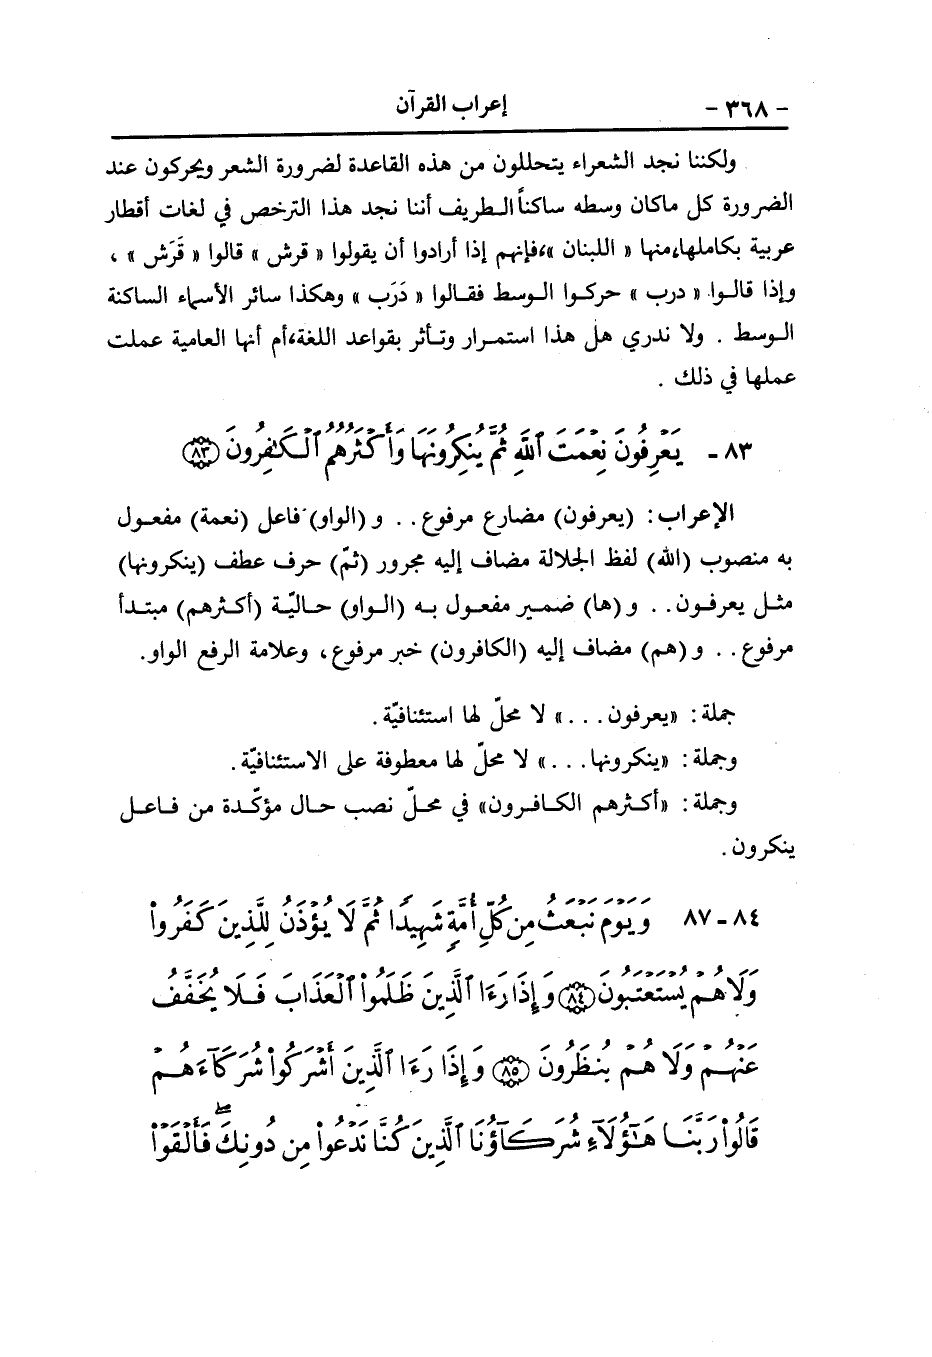 - ٣٦٨ - إعراب القرآن
ولكننا نجد الشعراء يتحللون من هذه القاعدة لضرورة الشعر ويحركون عند
الضرورة كل ماكان وسطه ساكناً الـطريف أننا نجد هذا الترخص في لغات أقطار
عربية بكاملها،منها « اللبنان »،فإنهم إذا أرادوا أن يقولوا « قرش » قالوا « قَرَش » ،
وإذا قالـوا « درب » حركـوا الـوسط فقـالوا « دَرَب » وهكذا سائر الأسماء الساكنة
الـوسط . ولا ندري هل هذا استمـرار وتـأثر بقواعد اللغة،أم أنها العامية عملت
عملها في ذلك .
٨٣ - يَعْرِفُونَ نِعْمَتَ ٱللَّهِ ثُمَّ يُنكِرُونَهَا وَأَكْثَرُهُمُ ٱلْكَٰفِرُونَ ٨٣
الإعراب: (يعرفون) مضارع مرفوع.. و (الواو) فاعل (نعمة) مفعـول
به منصوب (الله) لفظ الجلالة مضاف إليه مجرور (ثمّ) حرف عطف (ينكرونها)
مثـل يعرفـون.. و(ها) ضمير مفعـول بـه (الـواو) حـاليّـة (أكـثرهم) مبتـدأ
مرفوع.. و(هم) مضاف إليه (الكافرون) خبر مرفوع، وعلامة الرفع الواو.
جملة: «يعرفون...» لا محلّ لها استئنافيّة.
وجملة: «ينكرونها...» لا محلّ لها معطوفة على الاستئنافيّة.
وجملة: «أكـثرهم الكـافـرون» في محـلّ نصب حـال مؤكّـدة من فـاعـل
ينكرون.
٨٤ - ٨٧ وَيَوْمَ نَبْعَثُ مِن كُلِّ أُمَّةٍ شَهِيدًا ثُمَّ لَا يُؤْذَنُ لِلَّذِينَ كَفَرُوا۟
وَلَا هُمْ يُسْتَعْتَبُونَ ٨٤ وَإِذَا رَءَا ٱلَّذِينَ ظَلَمُوا۟ ٱلْعَذَابَ فَلَا يُخَفَّفُ
عَنْهُمْ وَلَا هُمْ يُنظَرُونَ ٨٥ وَإِذَا رَءَا ٱلَّذِينَ أَشْرَكُوا۟ شُرَكَآءَهُمْ
قَالُوا۟ رَبَّنَا هَٰٓؤُلَآءِ شُرَكَآؤُنَا ٱلَّذِينَ كُنَّا نَدْعُوا۟ مِن دُونِكَ ۖ فَأَلْقَوْا۟